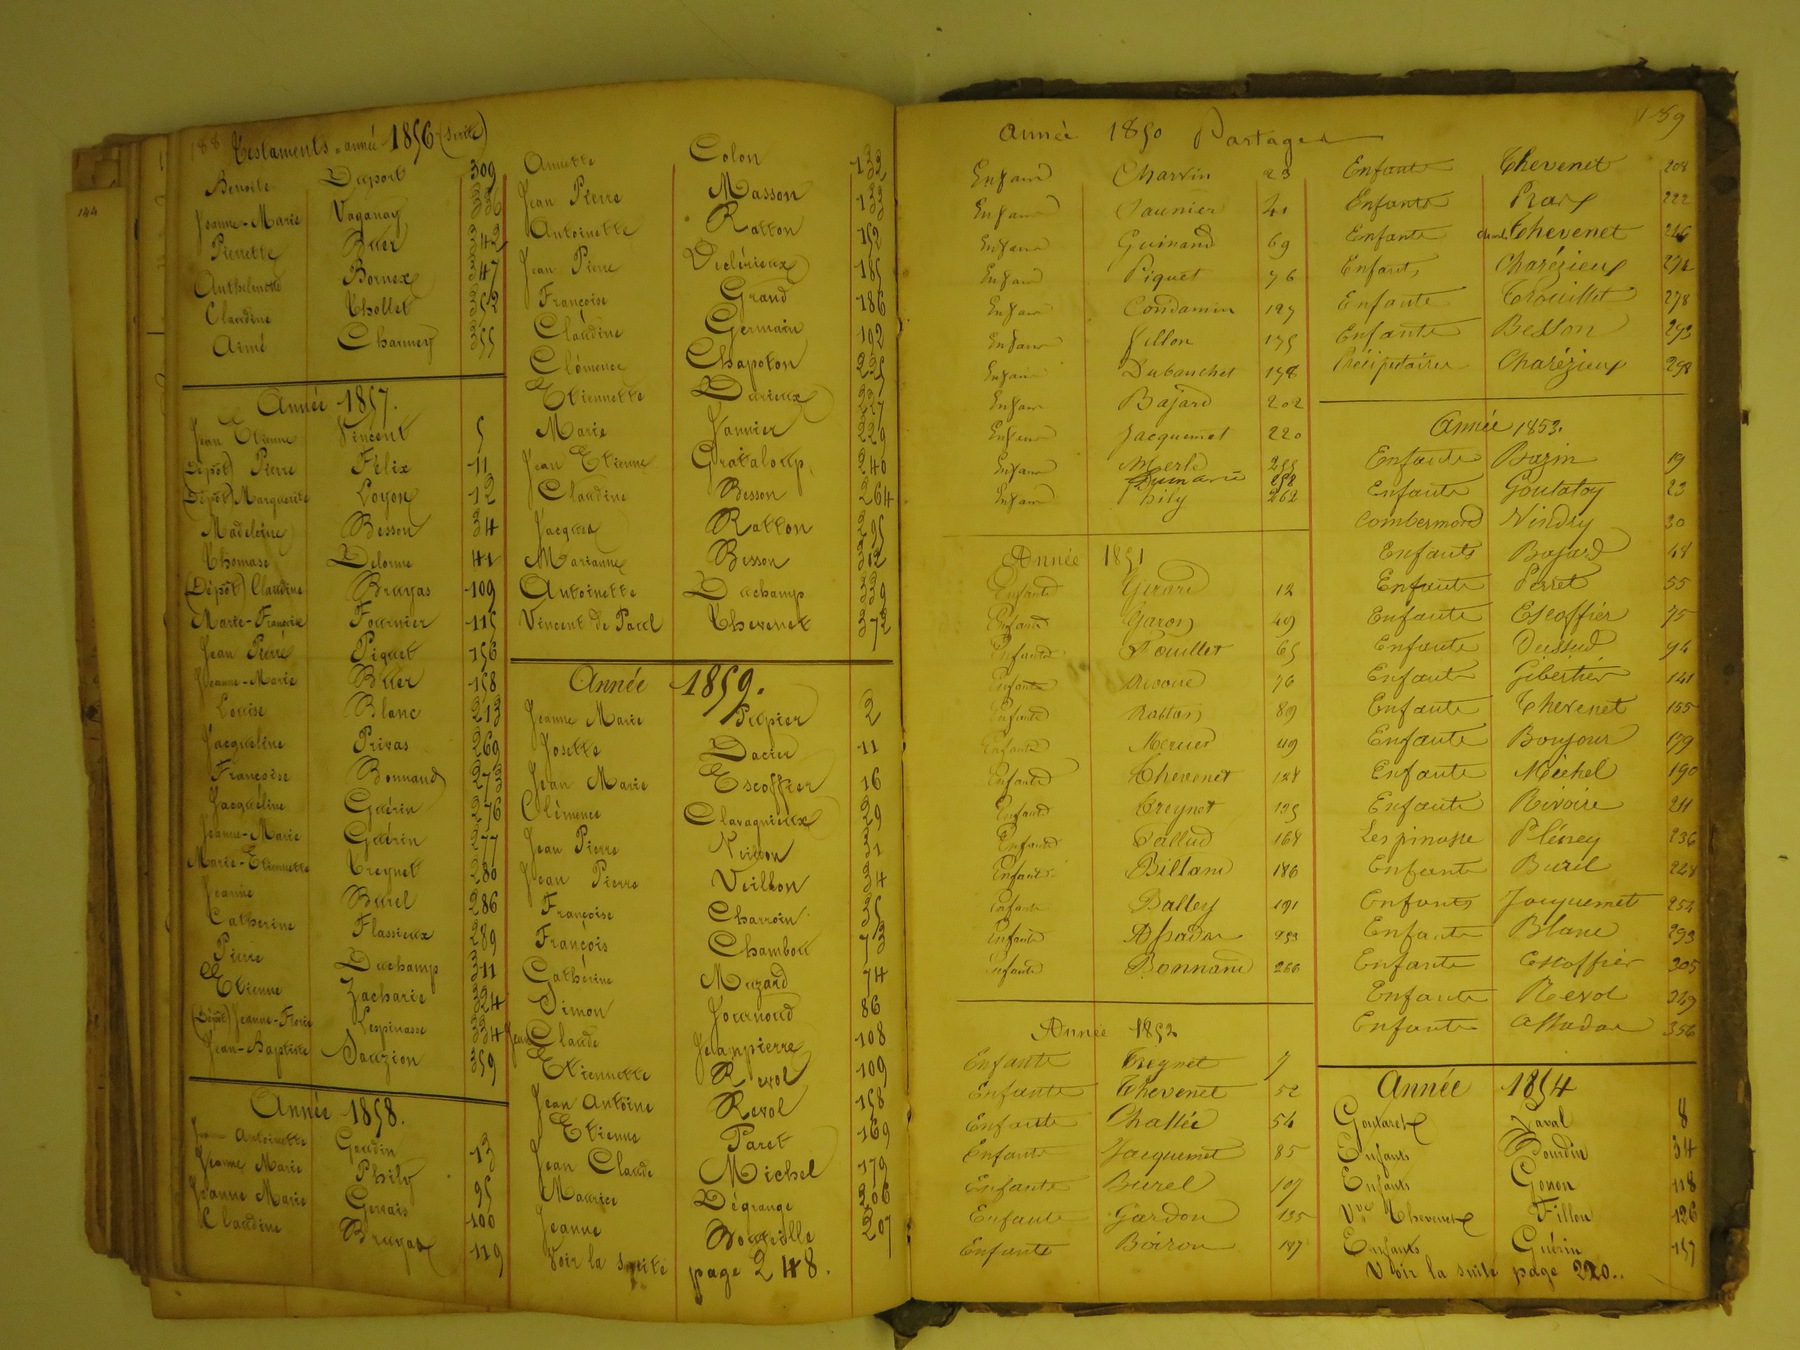 144
188 Testaments = année 1856 (suite)
Benoite Duport 309
Jeanne-Marie Vaganay 336
Pierrette Buer 342
Anthelmette Bornex 347
Claudine Thollet 352
Aimé Channey 355
Année 1857.
Jean Etienne Vincent 5
(Dépôt) Pierre Félix 11
(Dépôt) Marguerite Loyon 12
Madeleine Besson 34
Thomase Delorme 41
(Dépôt) Claudine Bruyas 109
Marie-Françoise Fournier 115
Jean Pierre Piquet 156
Jeanne-Marie Buer 158
Louise Blanc 213
Jacqueline Privas 269
Françoise Bonnand 273
Jacqueline Guérin 276
Jeanne-Marie Guérin 277
Marie-Etiennette Treynet 280
Jeanne Burel 286
Catherine Flassieux 289
Pierre Duchamp 311
Etienne Zacharie 324
(Dépôt) Jeanne-Florie Lespinasse 334
Jean-Baptiste Sauzion 359
Année 1858.
Jeanne Antoinette Gaudin 13
Jeanne Marie Phily
Jeanne Marie Gervais 95
Claudine 100
Bruyas 119
Annette Colon 132
Jean Pierre Masson 133
Antoinette Ratton 152
Jean Pierre 185
Françoise Grand 186
Claudine Germain 192
Clémence Chapoton 225
Etiennette Durieux 227
Marie Vannier 229
Jean Etienne Grataloup 240
Claudine Besson 264
Jacques Ratton 295
Marianne Besson 312
Antoinette Duchamp 339
Vincent de Paul Thevenet 372
Année 1859.
Jeanne Marie Pupier 2
Josette Dacier 11
Jean Marie Escoffier 16
Clémence Clavagnieux 29
Jean Pierre 31
Jean Pierre Veillon 34
Françoise Charroin 35
François Chambou 73
Cathérine Muzard 74
Simon Journoud 86
Jean Claude Jeanpierre 108
Etiennette Revol 109
Jean Antoine Revol 158
Etienne Paret 169
Jean Claude Michel 179
Maurice Dégrange 206
Jeanne Bouteille 207
Voir la suite page 248.
189
Année 1850 Partages
Enfans Charvin 23
Enfans Saunier 41
Enfans Guinand 69
Enfans Piquet 76
Enfans Condamin 127
Enfans Villon 175
Enfans Dubanchet 178
Enfans Bajard 202
Enfans Jacquemet 220
Enfans Merle 255
Dumarie 258
Enfans Phily 262
Année 1851
Enfants Girard 12
Enfants Garon 49
Enfants Pouillet 65
Enfants Rivoire 76
Enfants Ratton 89
Enfants Mercier 119
Enfants Thevenet 124
Enfants Treynet 125
Enfants Pallud 164
Enfants Billand 186
Enfants Balley 191
Enfants Assada 253
Enfants Bonnand 266
Année 1852
Enfants Treynet 7
Enfants Thevenet 52
Enfants Challée 54
Enfants Jacquemet 85
Enfants Burel 107
Enfants Gardon 135
Enfants Boiron 147
Enfants Thevenet 204
Enfants Prax 222
Enfants Thevenet 246
Enfants Charézieux 274
Enfants Trouillet 278
Enfants Besson 293
Précipitaire Charézieux 298
Année 1853.
Enfants Bazin 19
Enfants Goutatoy 23
Combermond Nindry 30
Enfants Bajard 48
Enfants Perret 55
Enfants Escoffier 75
Enfants Dussud 94
Enfants Gibertier 141
Enfants Thevenet 155
Enfants Bonjour 179
Enfants Michel 190
Enfants Rivoire 211
Lespinasse Pléney 236
Enfants Burel 224
Enfants Jacquemet 254
Enfants Blanc 293
Enfants Escoffier 305
Enfants Revol 349
Enfants Assada 356
Année 1854
Goutarel Laval 8
Enfants Bourdin 34
Enfants Gonon 118
Vve Thevenet Fillon 126
Enfants Guérin 157
Voir la suite page 220..